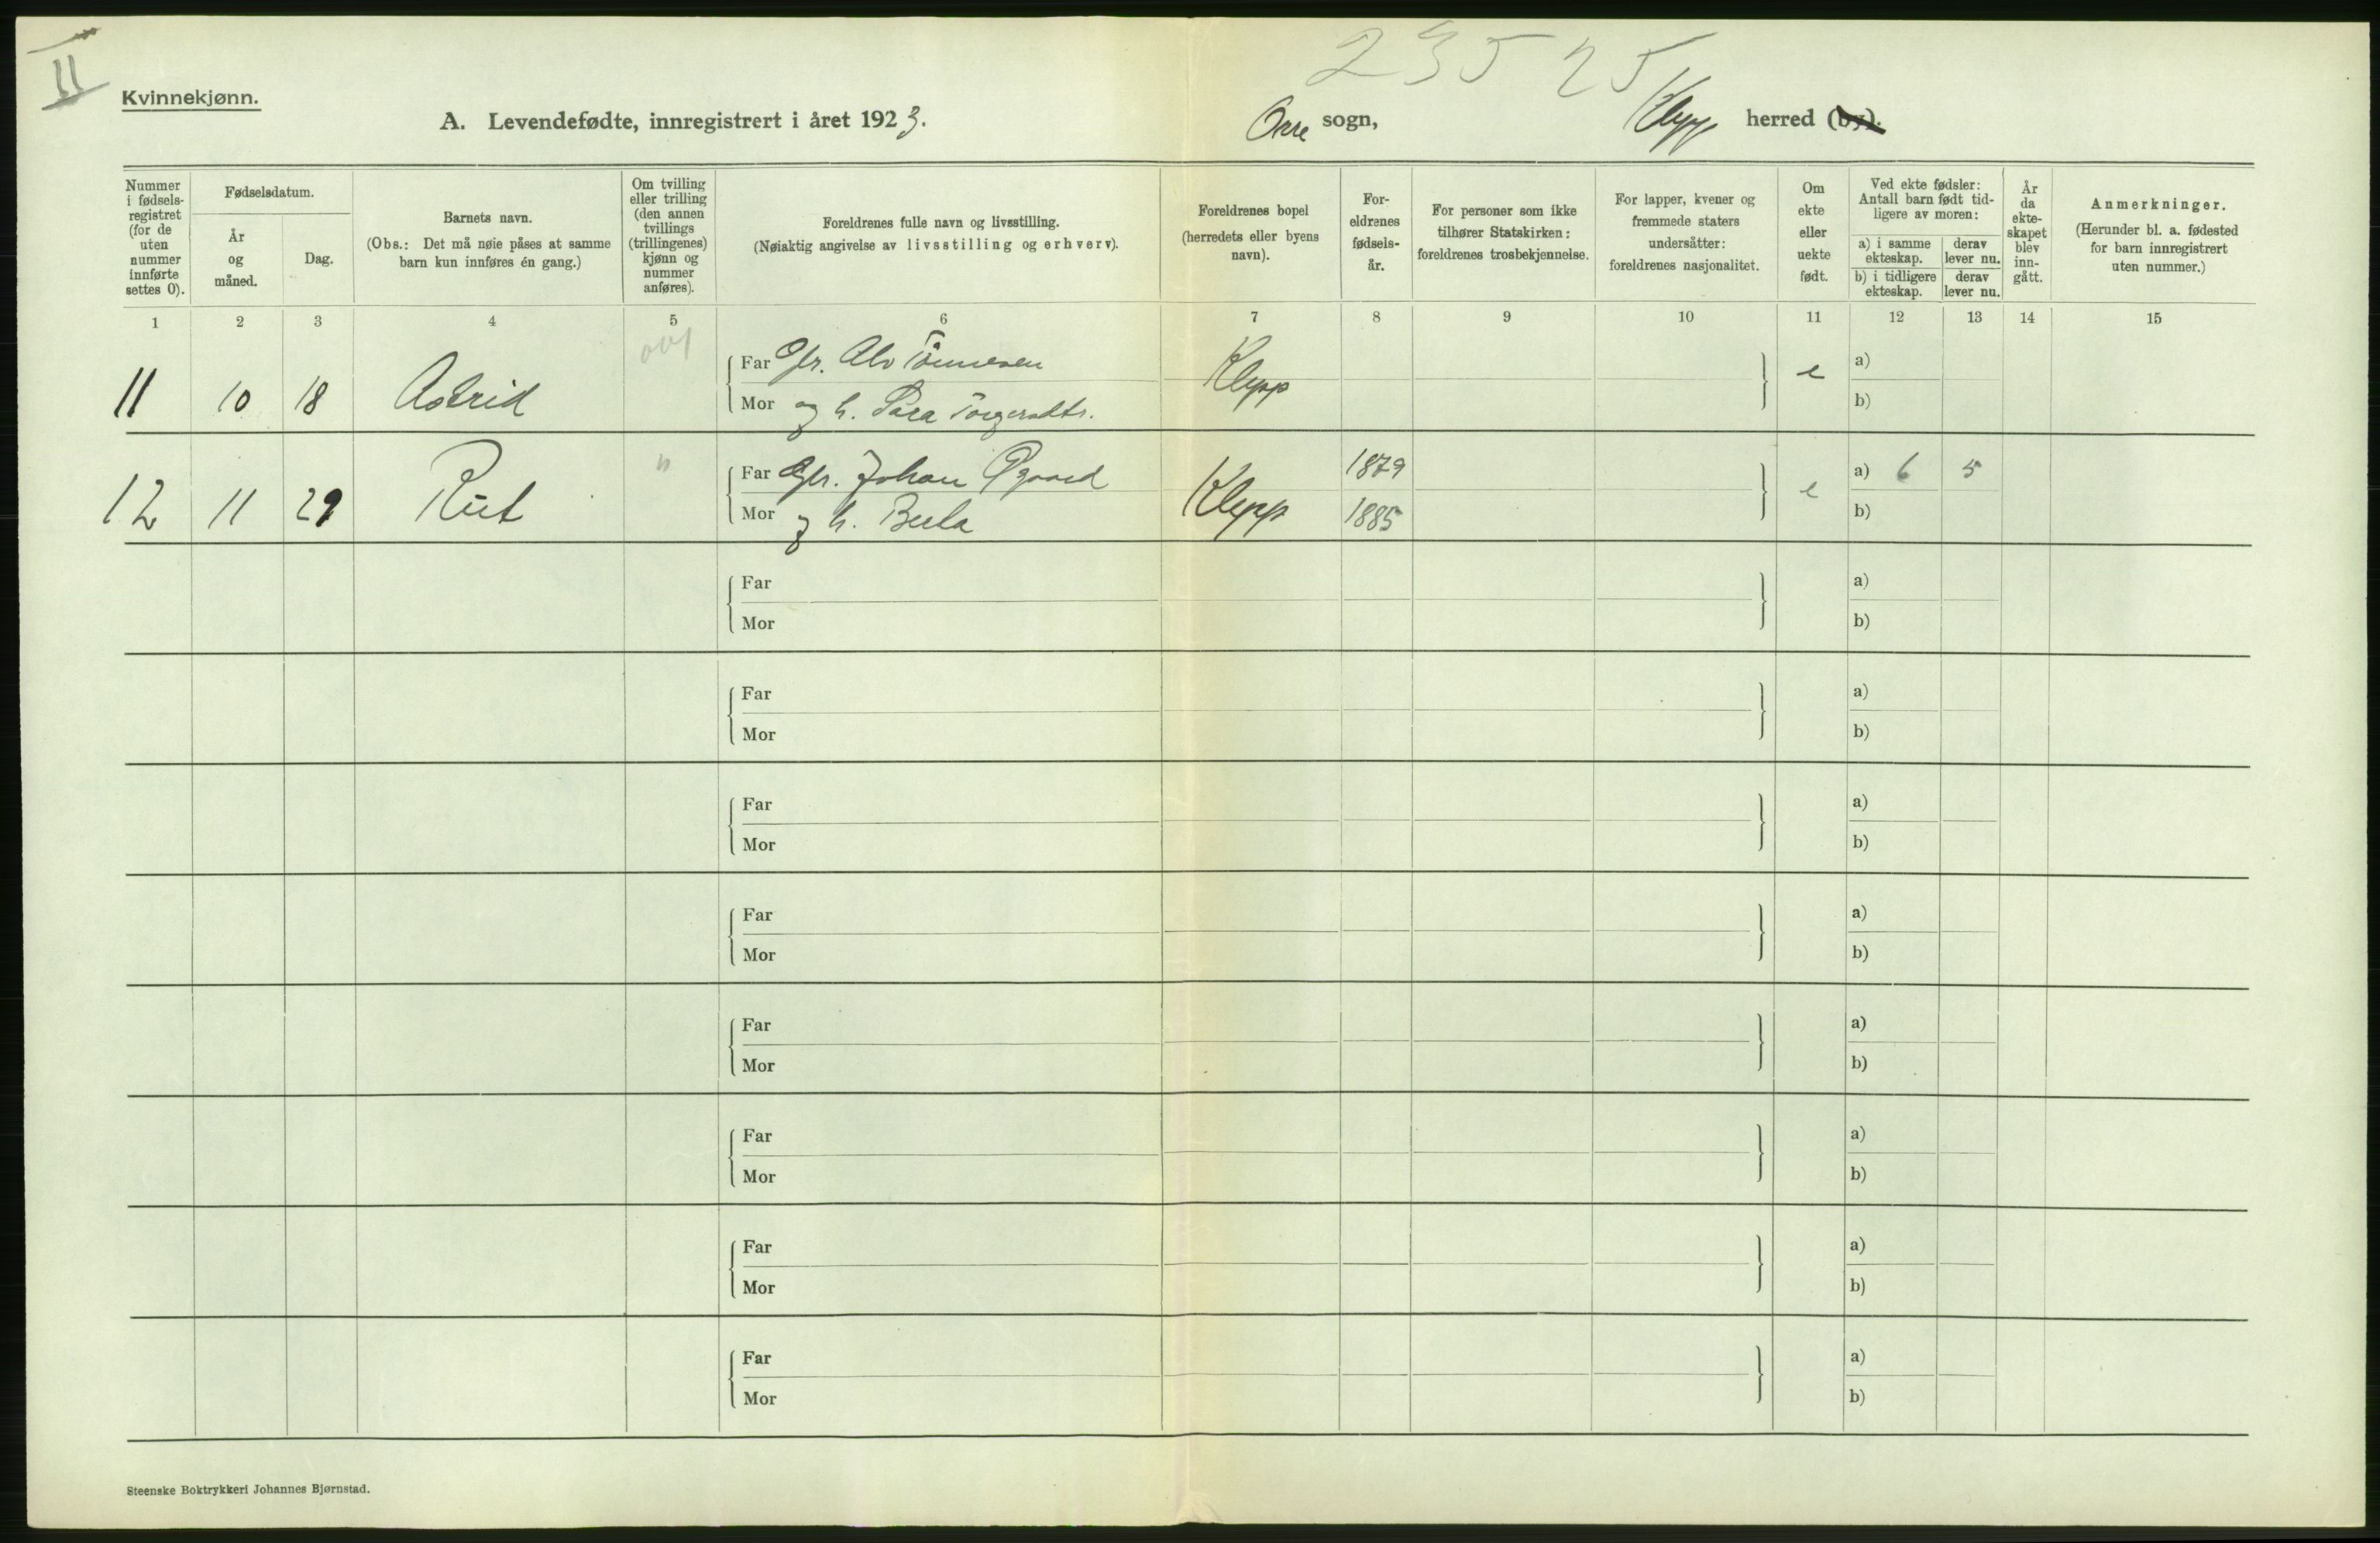 II
23525
Kvinnekjønn.
A. Levendefødte, innregistrert i året 1923.
Orre sogn,
Klepp herred (by).
Nummer i fødsels-registret (for de uten nummer innførte settes 0).
Fødselsdatum.
År og måned.
Dag.
Barnets navn.
(Obs.: Det må nøie påses at samme barn kun innføres én gang.)
Om tvilling eller trilling (den annen tvillings (trillingenes) kjønn og nummer anføres).
Foreldrenes fulle navn og livsstilling.
(Nøiaktig angivelse av livsstilling og erhverv).
Foreldrenes bopel (herredets eller byens navn).
For-eldrenes fødsels-år.
For personer som ikke tilhører Statskirken: foreldrenes trosbekjennelse.
For lapper, kvener og fremmede staters undersåtter: foreldrenes nasjonalitet.
Om ekte eller uekte født.
Ved ekte fødsler: Antall barn født tid-ligere av moren:
a) i samme ekteskap.
derav lever nu.
b) i tidligere ekteskap.
derav lever nu.
År da ekte-skapet blev inn-gått.
Anmerkninger.
(Herunder bl. a. fødested for barn innregistrert uten nummer.)
1 2 3 4 5 6 7 8 9 10 11 12 13 14 15
11 10 18 Astrid Far Gfr. Alv Tönnesen Klepp e a)
Mor og h. Sara b)
12 11 29 Rut " Far Gfr. Johan Øgaard Klepp 1879 e a) 6 5
Mor og h. Berta 1885 b)
Far a)
Mor b)
Far a)
Mor b)
Far a)
Mor b)
Far a)
Mor b)
Far a)
Mor b)
Far a)
Mor b)
Far a)
Mor b)
Far a)
Mor b)
Steenske Boktrykkeri Johannes Bjørnstad.